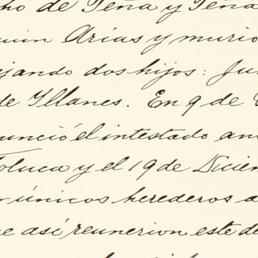 ho de Peña y Peña
uin Arias y murió
ejando dos hijos: Ju
de Yllanes. En 9 de
unció el intestado an
Toluca y el 19 de Diciem
únicos herederos a
e así reunerion este de